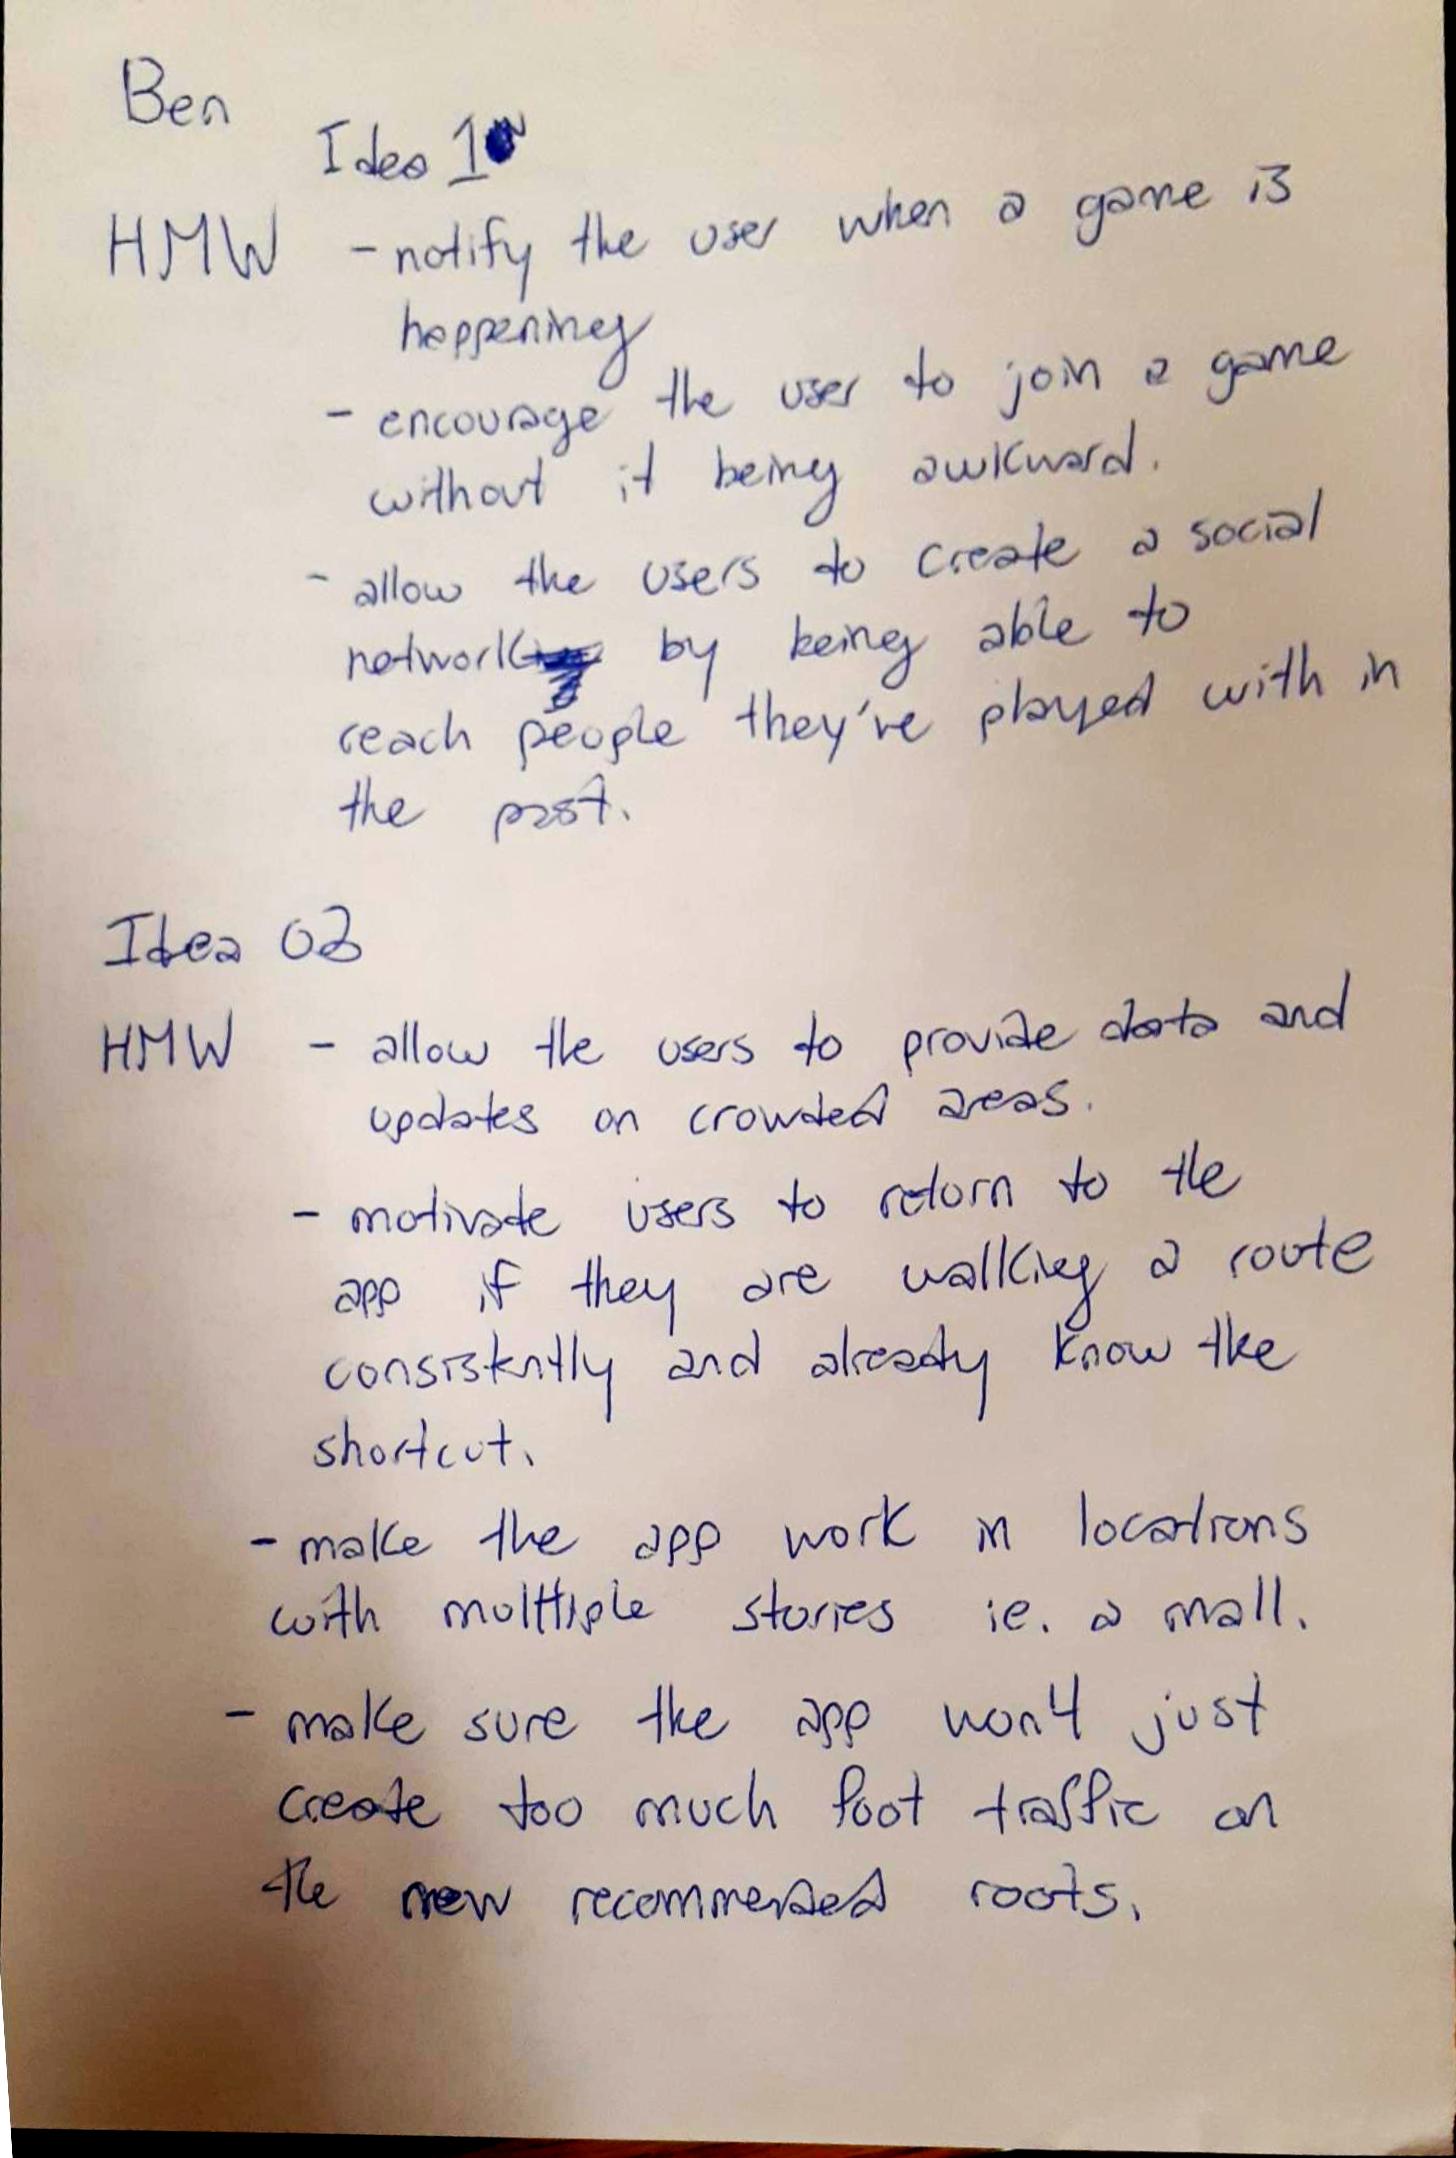 Ben
Idea 1
HMW - notify the user when a game is
happening
- encourage the user to join a game
without it being awkward.
- allow the users to create a social
network by being able to
reach people they've played with in
the past.
Idea 02
HMW - allow the users to provide data and
updates on crowded areas.
- motivate users to return to the
app if they are walking a route
consistently and already know the
shortcut.
- make the app work in locations
with multiple stories ie. a mall.
- make sure the app won't just
create too much foot traffic on
the new recommended roots.